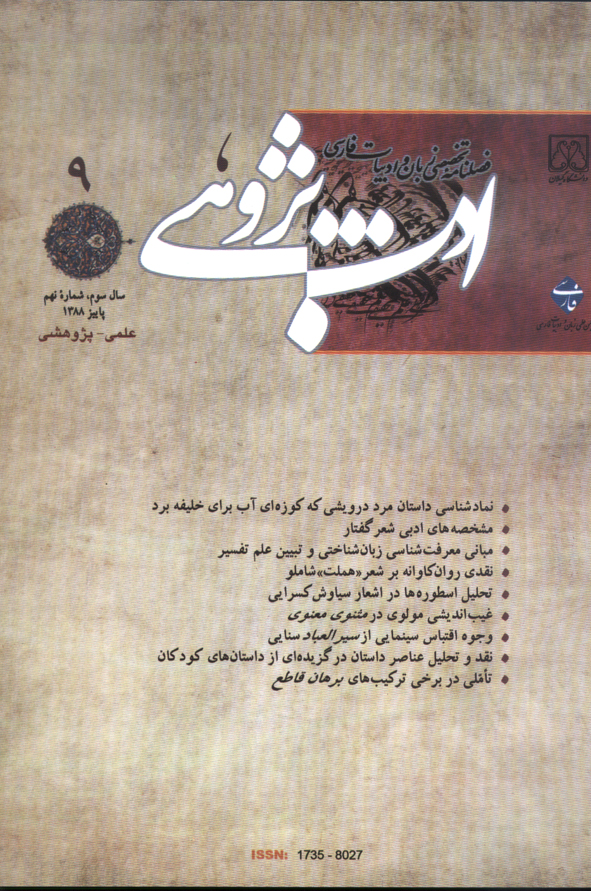 فصلنامه تخصصی زبان و ادبیات فارسی
ادب پژوهی
دانشگاه گیلان
فارسی
۹
سال سوم، شمارهٔ نهم
پاییز ۱۳۸۸
علمی - پژوهشی
نمادشناسی داستان مرد درویشی که کوزه‌ای آب برای خلیفه برد
مشخصه‌های ادبی شعر گفتار
مبانی معرفت‌شناسی زبان‌شناختی و تبیین علم تفسیر
نقدی روان‌کاوانه بر شعر «هملت» شاملو
تحلیل اسطوره‌ها در اشعار سیاوش کسرایی
غیب‌اندیشی مولوی در مثنوی معنوی
وجوه اقتباس سینمایی از سیرالعباد سنایی
نقد و تحلیل عناصر داستان در گزیده‌ای از داستان‌های کودکان
تأمّلی در برخی ترکیب‌های برهان قاطع
ISSN: 1735 - 8027